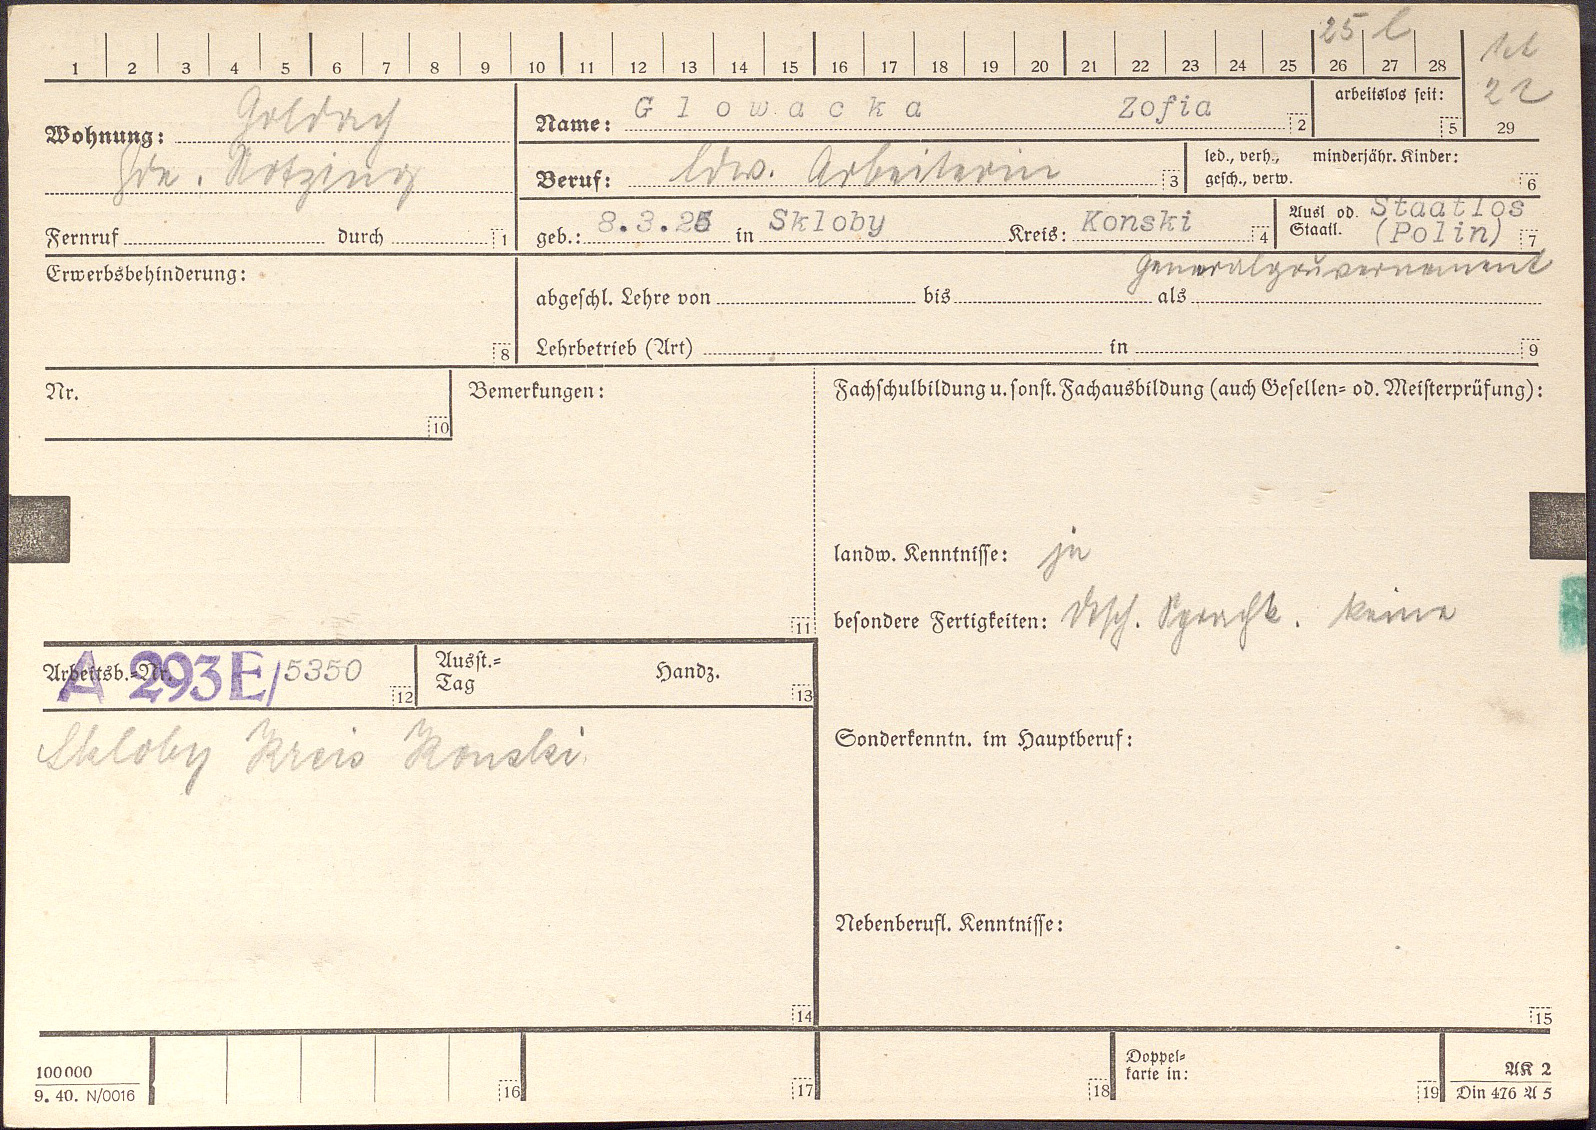 25 l
1 2 3 4 5 6 7 8 9 10 11 12 13 14 15 16 17 18 19 20 21 22 23 24 25 26 27 28
22
29
Wohnung: Goldach
Gde. Notzing
Fernruf durch 1
Name: Glowacka Zofia 2
arbeitslos seit: 5
Beruf: ldw. Arbeiterin 3
led., verh., minderjähr. Kinder:
gesch., verw. 6
geb.: 8.3.25 in Skloby Kreis: Konski 4
Ausl od. Staatlos
Staatl. (Polin) 7
Generalgouvernement
Erwerbsbehinderung:
8
abgeschl. Lehre von bis als
Lehrbetrieb (Art) in 9
Nr.
10
Bemerkungen:
11
Fachschulbildung u. sonst. Fachausbildung (auch Gesellen= od. Meisterprüfung):
landw. Kenntnisse: ja
besondere Fertigkeiten: dtsch. Sprachk. keine
Arbeitsb.=Nr. A 293E/5350 12
Ausst.=
Tag Handz. 13
Skloby Kreis Konski
14
Sonderkenntn. im Hauptberuf:
Nebenberufl. Kenntnisse:
15
100000
9. 40. N/0016
16
17
18
Doppel=
karte in:
19
AK 2
Din 476 A 5